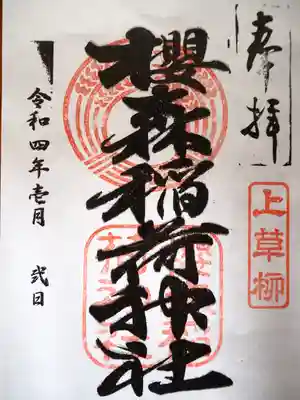 奉拝
上草柳
櫻森稲荷神社
令和四年壱月 弐日